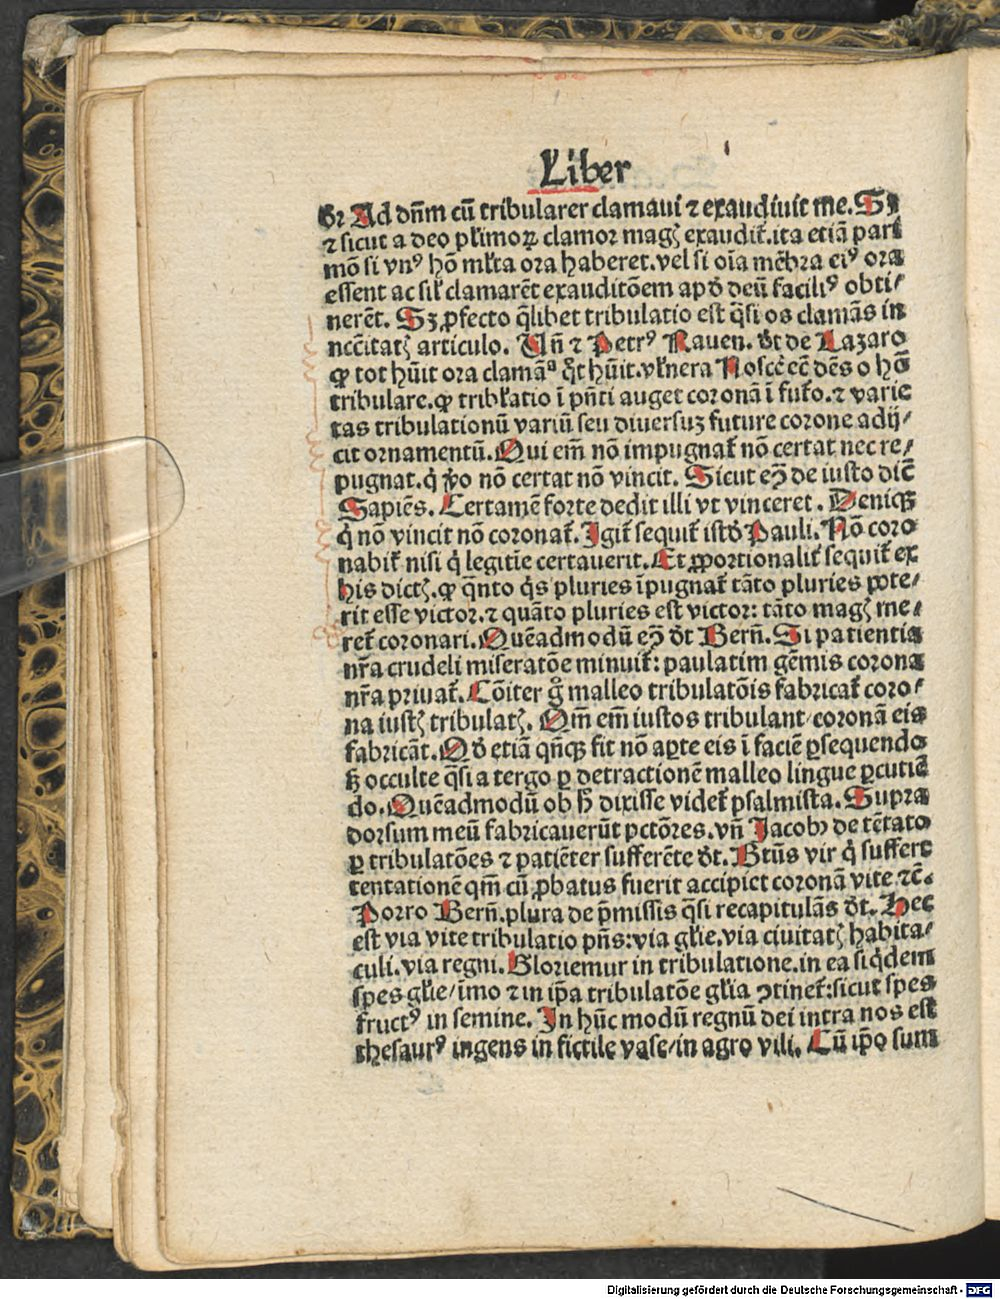 Liber
gr̄ Ad dn̄m cū tribularer clamaui ⁊ exaudiuit me. Sȝ
⁊ sicut a deo pl̄imoꝝ clamor magꝭ exaudit̄. ita etiā pari
mō si vnꝰ hō ml̄ta ora haberet. vel si oīa mēbra eiꝰ ora
essent ac sil̄ clamarēt exauditōem apd̄ deū faciliꝰ obti⸗
nerēt. Sȝ ꝓfecto q̄libet tribulatio est q̄si os clamās in
ncc̄itatꝭ articulo. Vn̄ ⁊ Petrꝰ Rauen. dt̄ de Lazaro
ꝙ tot hūit ora clamāª q̄t hūit. vl̄nera Nosc̄e ec̄ dēs o hō
tribulare. ꝙ tribl̄atio ī pn̄ti auget coronā ī fut̄o. ⁊ varie
tas tribulationū variū seu diuersuȝ future corone adij⸗
cit ornamentū. Qui em̄ nō impugnat̄ nō certat nec re⸗
pugnat. q̇ ꝟo nō certat nō vincit. Sicut eī de iusto dic̄
Sapiēs. Certamē forte dedit illi vt vinceret. Deniqꝫ
q̇ nō vincit nō coronat̄. Igit̄ sequit̄ istd̄ Pauli. Nō coro
nabit̄ nisi q̇ legitīe certauerit. Et ꝓportionalit̄ sequit̄ ex
his dictꝭ. ꝙ q̄nto q̇s pluries īpugnat̄ tāto pluries pote⸗
rit esse victor. ⁊ quāto pluries est victor: tāto magꝭ me⸗
ret̄ coronari. Quēadmodū eī dt̄ Bern̄. Si patientia
nr̄a crudeli miseratōe minuit̄: paulatim gēmis corona
nr̄a priuat̄. Cōiter g̊ malleo tribulatōis fabricat̄ coro⸗
na iustꝭ tribulatꝭ. Qm̄ em̄ iustos tribulant/coronā eis
fabricāt. Qd̄ etiā qn̄qꝫ fit nō aꝑte eis ī faciē ꝑsequendo
sȝ occulte q̄si a tergo ꝑ detractionē malleo lingue ꝑcutiē
do. Quēadmodū ob h̄ dixisse videt̄ psalmista. Supra
dorsum meū fabricauerūt pctōres. vn̄ Jacobꝰ de tētato
ꝑ tribulatōes ⁊ patiēter sufferēte dt̄. Btūs vir q̇ suffert
tentationē qm̄ cū ꝓbatus fuerit accipiet coronā vite ⁊c̄.
Porro Bern̄. plura de p̄missis q̄si recapitulās dt̄. Hec
est via vite tribulatio pn̄s: via gl̄ie. via ciuitatꝭ habita⸗
culi. via regni. Gloriemur in tribulatione. in ea siq̇dem
spes gl̄ie/īmo ⁊ in ip̄a tribulatōe gl̄ia ↄtinet̄: sicut spes
fructꝰ in semine. In hūc modū regnū dei intra nos est
thesaurꝰ ingens in fictile vase/in agro vili. Cū ip̄o sum
Digitalisierung gefördert durch die Deutsche Forschungsgemeinschaft - DFG